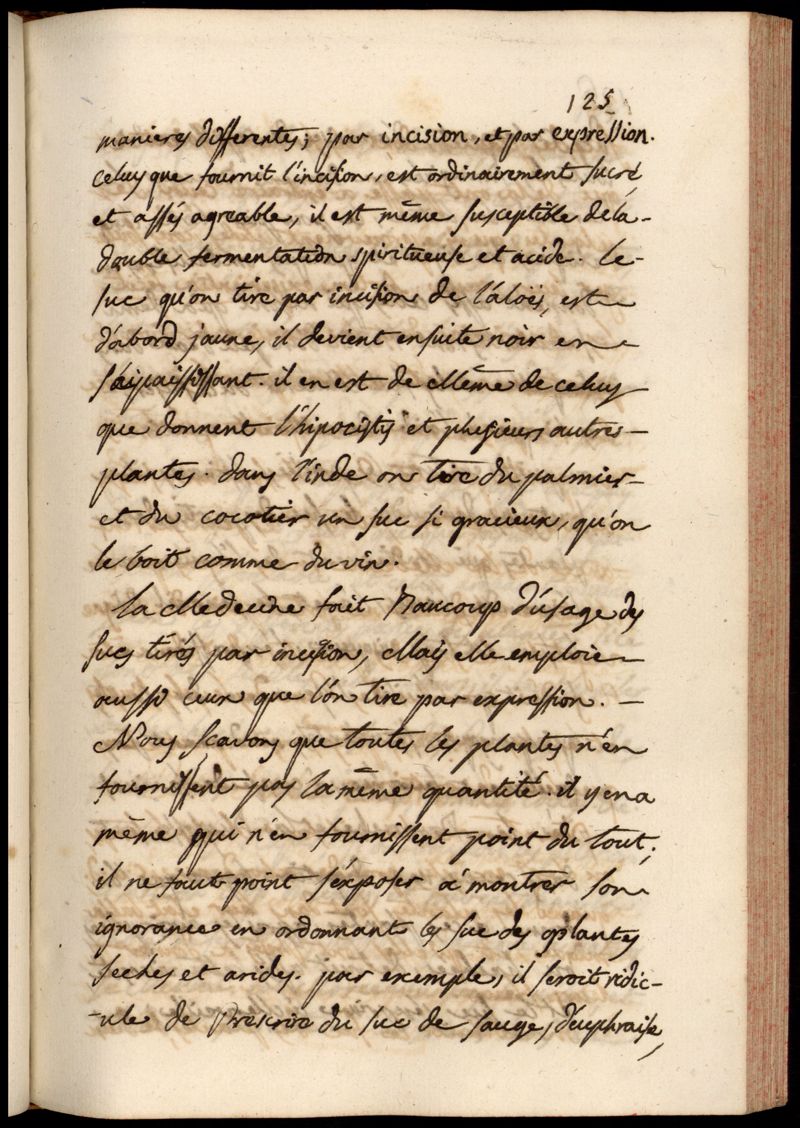 125
manieres differentes; par incision, et par expression.
celuy que fournit l'incision, est ordinairement sucré,
et assés agreable, il est même susceptible de la-
double fermentation spiritueuse et acide. le-
suc qu'on tire par incision de l'aloës, est
d'abord jaune, il devient ensuite noir en
s'aipaississant. il en est de Même de celuy
que donnent l'hipocistis et plusieurs autres-
plantes. dans l'inde on tire du palmier-
et du cocotier un suc si gracieux, qu'on
le boit comme du vin.
la Medecine fait Baucoup d'usage des
sucs tirés par incision, Mais elle emploie
aussi ceux que l'on tire par expression. -
Nous scavons que toutes les plantes n'en
fournissent pas la même quantité. il y en a
même qui n'en fournissent point du tout.
il ne faut point s'exposer a montrer son
ignorance en ordonnant le suc des plantes
seches et arides. par exemple, il seroit ridic-
-ule de Prescrire du suc de sauge, d'euphraise,